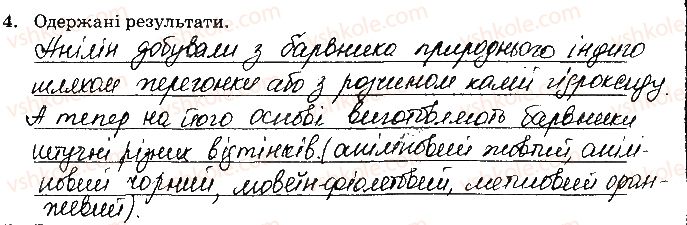 4. Одержані результати.
Анілін добували з барвника природнього індиго
шляхом перегонки або з розчином калій гідроксиду.
А тепер на його основі виготовляють барвники
штучні різних відтінків.(аніліновий жовтий, анілі-
новий чорний, мовеїн-фіолетовий, метиловий оран-
жевий).